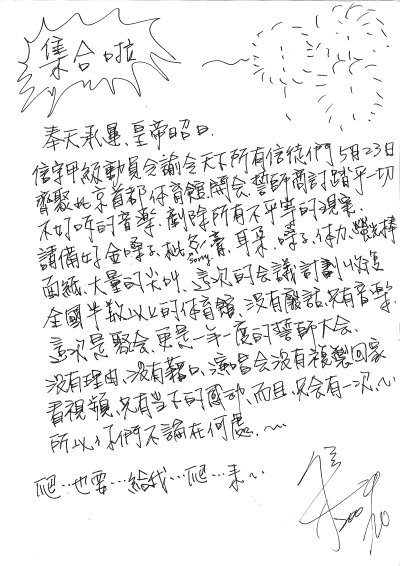 集合啦
奉天承運、皇帝昭曰
信守甲級動員令諭令天下所有信徒們5月23日
齊聚北京首都体育館.開会.誓師商討踏平一切
不好听的音樂.剷除所有不平等的現象
請備好金嗓子.枇杷膏.耳朵.嗓子.体力.螢光棒
sorry
面紙.大量的尖叫.這次的会議計劃收復
全國半数以上的体育館.没有廢話.只有音樂
這次是聚会.更是一年一度的誓師大会.
没有理由.没有藉口.演唱会没有複製回家
看視頻.只有当下的感动、而且.只会有一次.~
所以你們不論在何處.~
爬…也要…給我…爬…来~